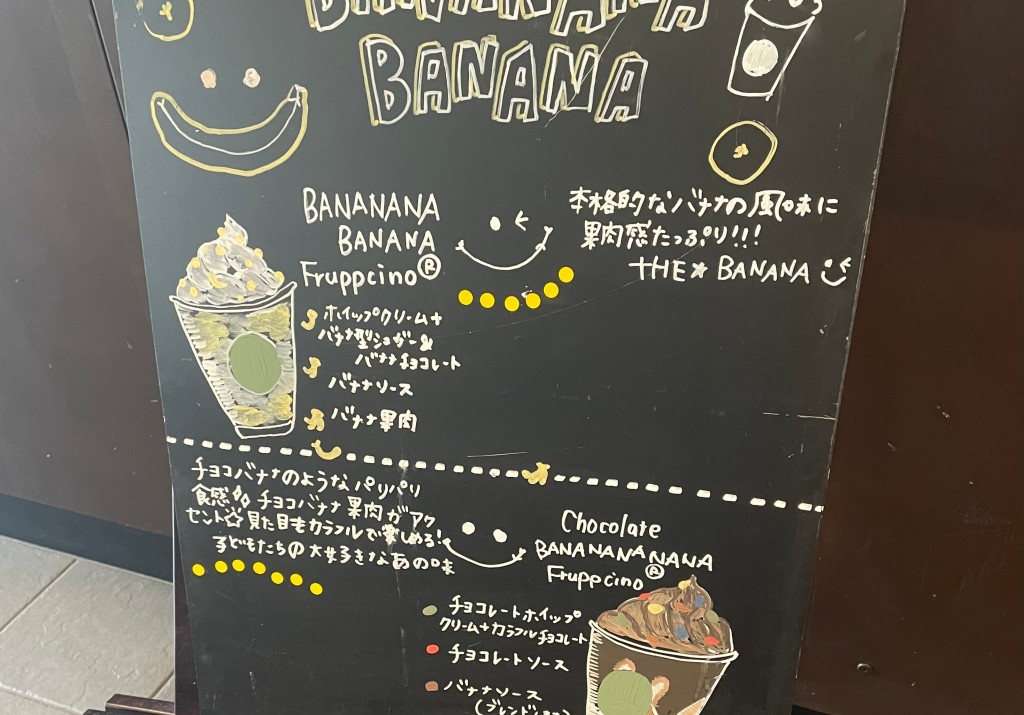 BANANANA
BANANA
BANANANA
BANANA
Fruppcino®
ホイップクリーム+
バナナ型シュガー&
バナナチョコレート
バナナソース
バナナ果肉
本格的なバナナの風味に
果肉感たっぷり!!!
THE★BANANA
チョコバナナのようなパリパリ
食感 チョコバナナ果肉がアク
セント☆見た目もカラフルで楽しめる!
子どもたちの大好きなあの味
Chocolate
BANANANANANA
Fruppcino®
チョコレートホイップ
クリーム+カラフルチョコレート
チョコレートソース
バナナソース